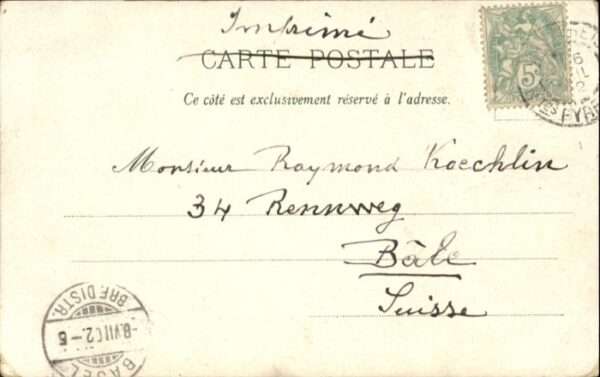 Imprimé
CARTE POSTALE
Ce côté est exclusivement réservé à l'adresse.
5
Monsieur Raymond Koechlin
34 Rennweg
Bâle
Suisse
BASEL
BRF.DISTR.
-8.VII.02.-5